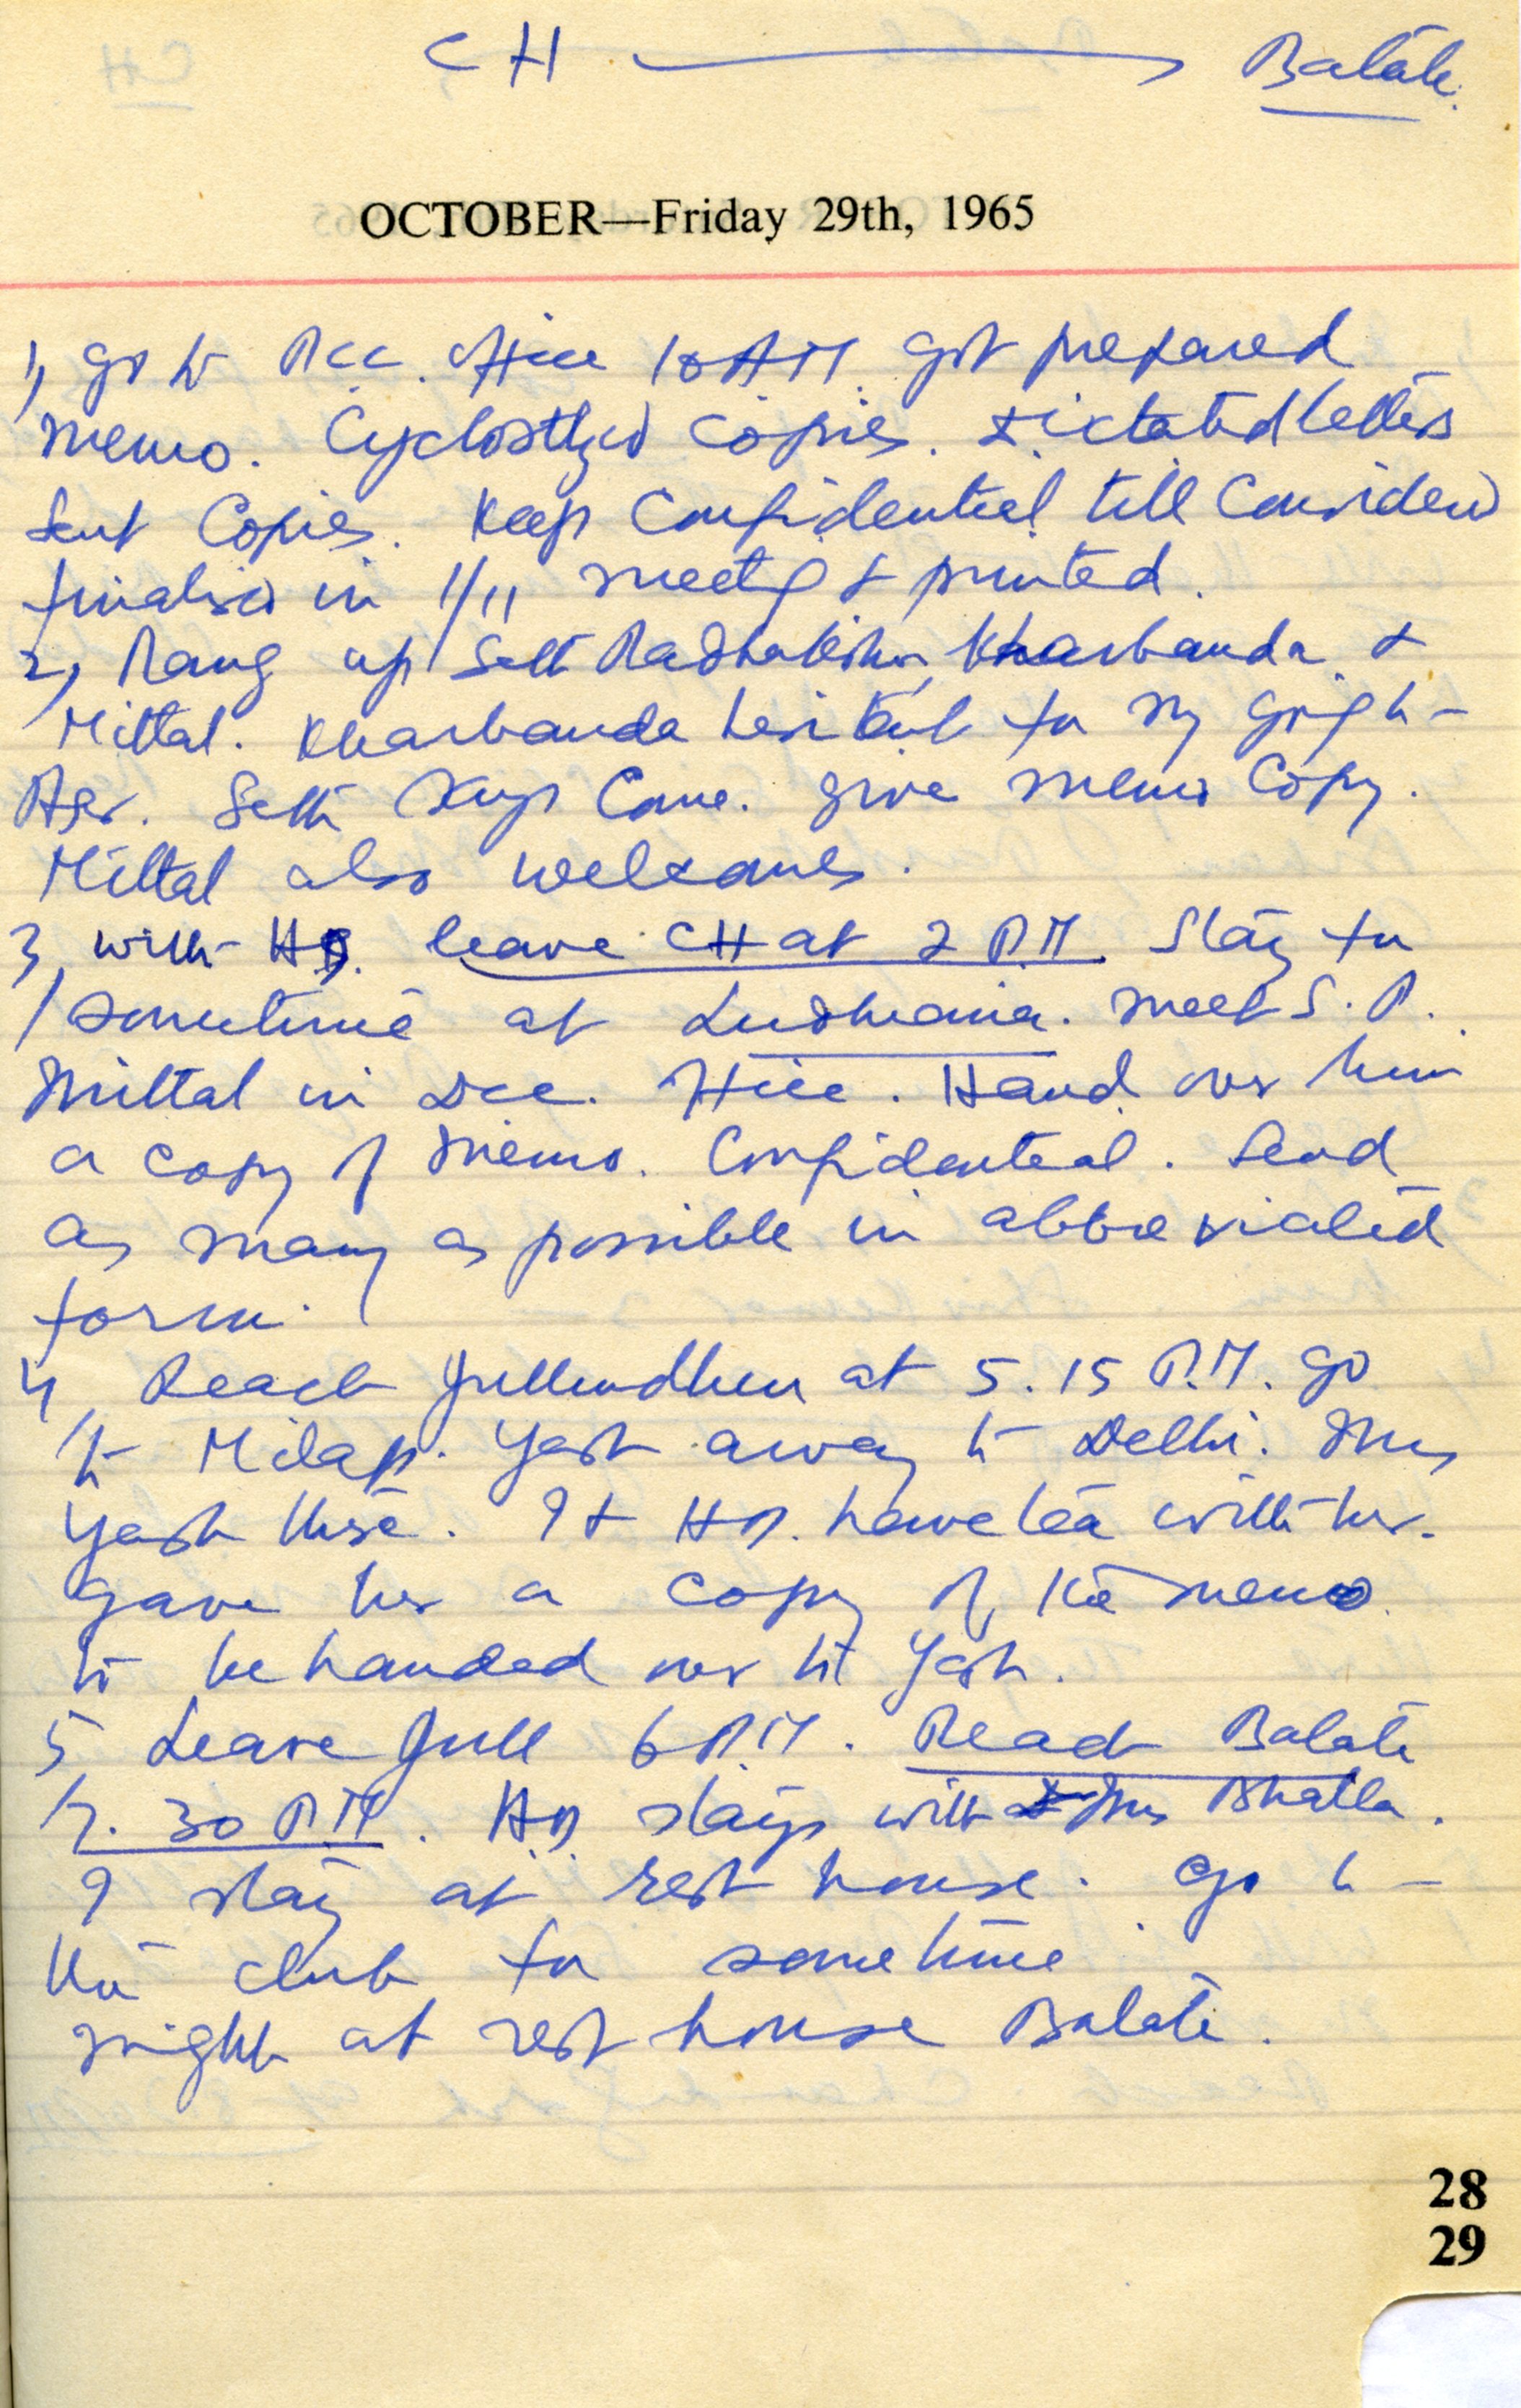 CH → Batala
OCTOBER—Friday 29th, 1965
1, go to PCC. office 10 AM. got prepared
memo. Cyclostlyed copies. dictated letters
sent Copies. Keep Confidential till Considered
finalised in 1/11 meetg & printed.
2, Rang up Seth Radhakishn, Kharbanda &
Mittal. Kharbanda hesitant for my going to
Asr. Seth says Come. give memo Copy.
Mittal also welcomes.
3, with HB. leave CH at 2 P.M. Stay for
sometime at Ludhiana. meet S. P.
Mittal in Dcc. office. Hand over him
a copy of memo. Confidential. Send
as many as possible in abbreviated
form.
4, Reach Jullundhur at 5.15 P.M. go
to Milap. Yash away to Delhi. Mrs
Yash there. I & HB. have tea with her.
gave her a copy of the memo
to be handed over to Yash.
5, Leave Jull 6 P.M. Reach Batala
7.30 P.M. HB stays with Mrs Bhalla.
I stay at rest house. go to
the club for sometime
night at rest house Batala.
28
29